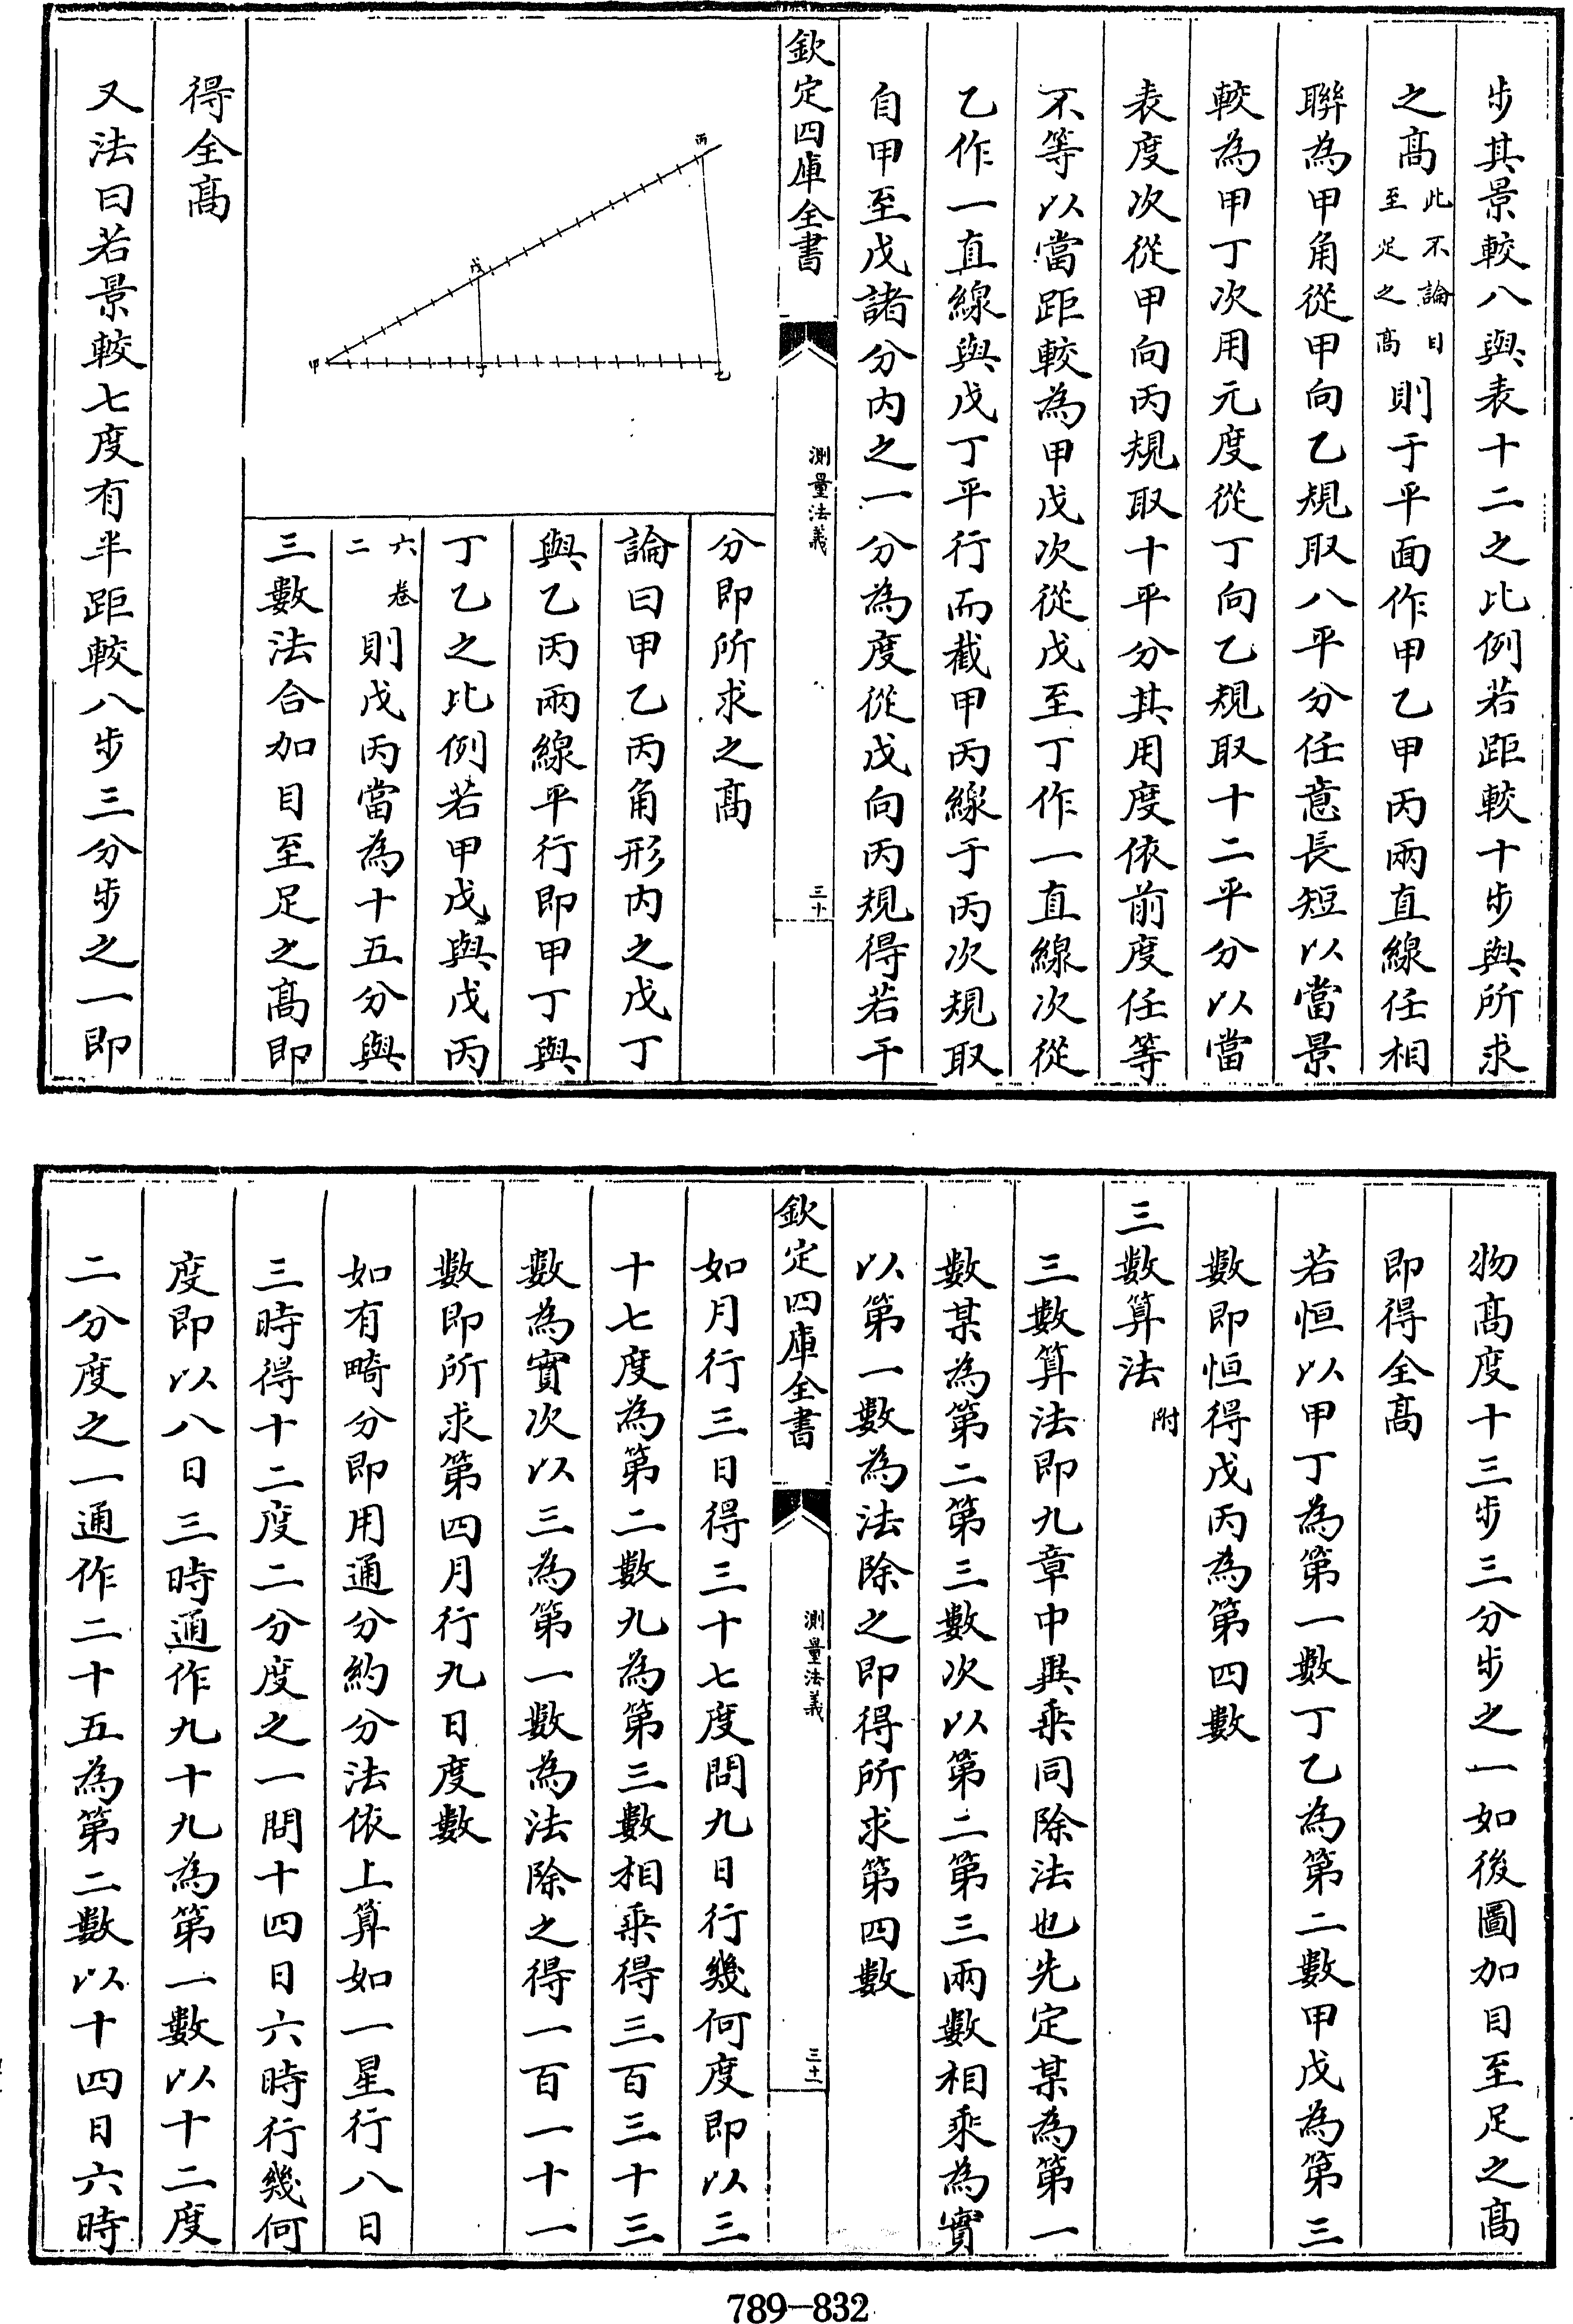 步其景較八與表十二之比例若距較十步與所求
之髙此不論目至足之髙則于平面作甲乙甲丙兩直線任相
聯為甲角從甲向乙規取八平分任意長短以當景
較為甲丁次用元度從丁向乙規取十二平分以當
表度次從甲向丙規取十平分其用度依前度任等
不等以當距較為甲戊次從戊至丁作一直線次從
乙作一直線與戊丁平行而截甲丙線于丙次規取
自甲至戊諸分内之一分為度從戊向丙規得若干
欽定四庫全書
測量法義
三十
分即所求之髙
論曰甲乙丙角形内之戊丁
與乙丙兩線平行即甲丁與
丁乙之比例若甲戊與戊丙
六卷二則戊丙當為十五分與
三數法合加目至足之髙即
丙
戊
甲
丁
乙
得全髙
又法曰若景較七度有半距較八步三分步之一即
物髙度十三步三分步之一如後圖加目至足之髙
即得全髙
若恒以甲丁為第一數丁乙為第二數甲戊為第三
數即恒得戊丙為第四數
三數算法附
三數算法即九章中異乘同除法也先定某為第一
數某為第二第三數次以第二第三兩數相乘為實
以第一數為法除之即得所求第四數
欽定四庫全書
測量法義
三十一
如月行三日得三十七度問九日行幾何度即以三
十七度為第二數九為第三數相乘得三百三十三
數為實次以三為第一數為法除之得一百一十一
數即所求第四月行九日度數
如有畸分即用通分約分法依上算如一星行八日
三時得十二度二分度之一問十四日六時行幾何
度即以八日三時通作九十九為第一數以十二度
二分度之一通作二十五為第二數以十四日六時
789–832